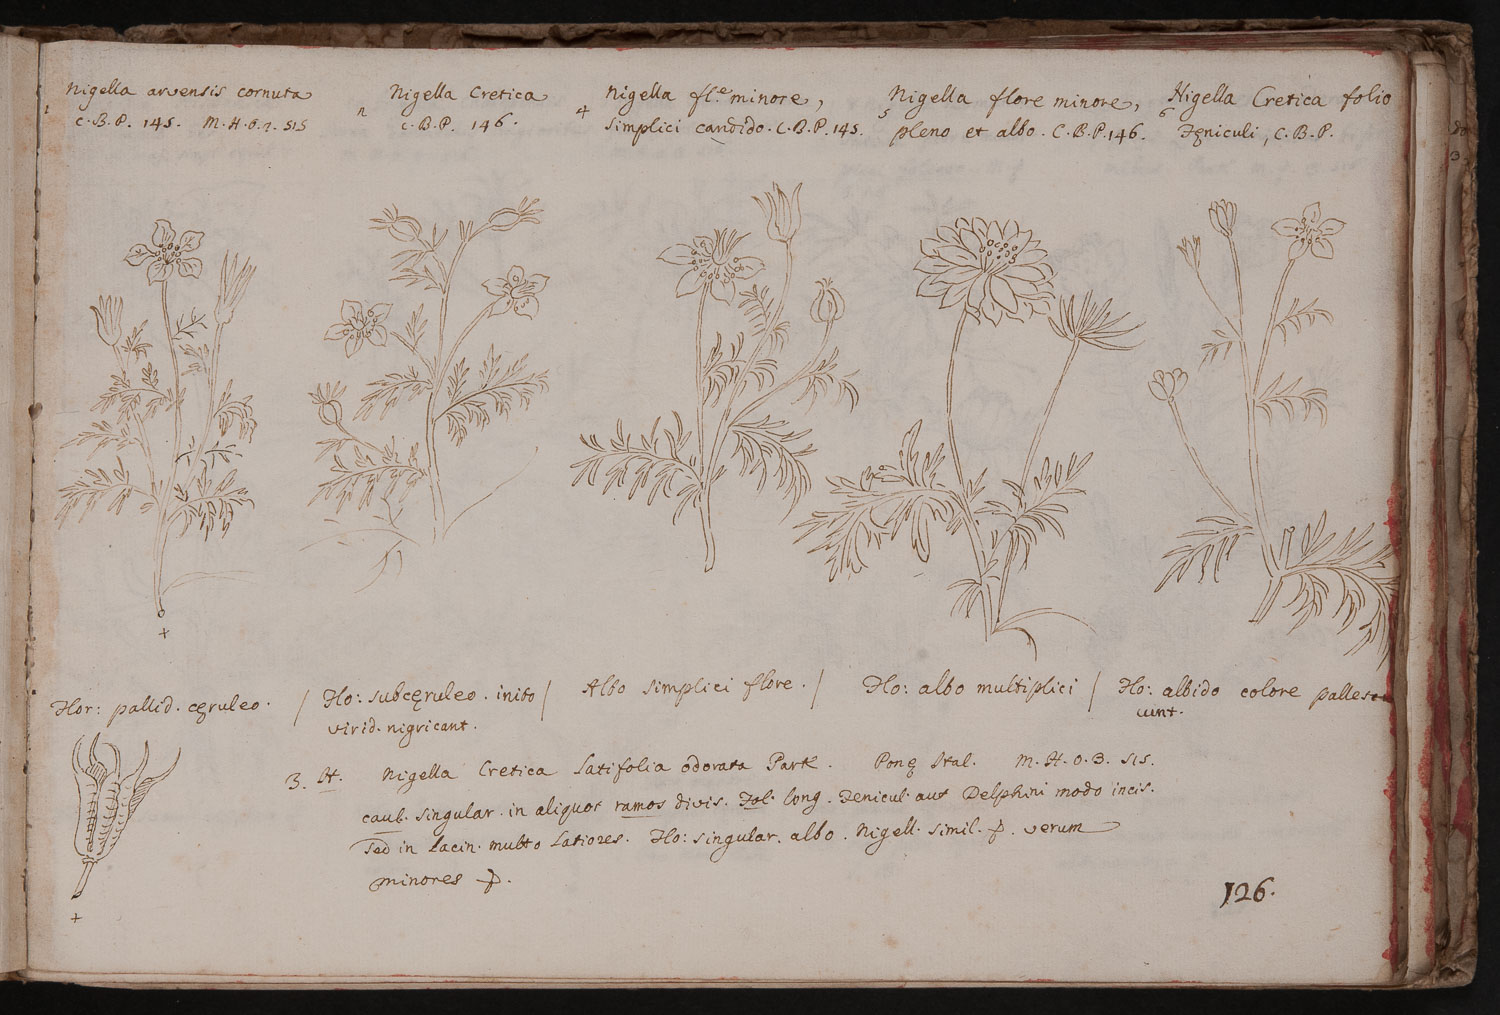 1 Nigella arvensis cornuta
C.B.P. 145. M.H.O.2. 515
2 Nigella Cretica
C.B.P. 146.
4 Nigella fl.e minore,
simplici candido. C.B.P. 145.
5 Nigella flore minore,
pleno et albo. C.B.P. 146.
6 Nigella Cretica folio
Fęniculi, C.B.P.
+
Flor: pallid. cęruleo.
/ Flo: subcęruleo. initio
virid. nigricant.
/ Albo simplici flore. /
Flo: albo multiplici
/ Flo: albido colore pallesc
unt.
3. It. Nigella Cretica latifolia odorata Park. Ponę Ital. M.H.O.3. 515.
caul. singular. in aliquot ramos divis. Fol. long. Fenicul. aut Delphini modo incis.
sed in lacin. multo latiores. Flo: singular. albo. Nigell. simil. verum
minores
+
126.